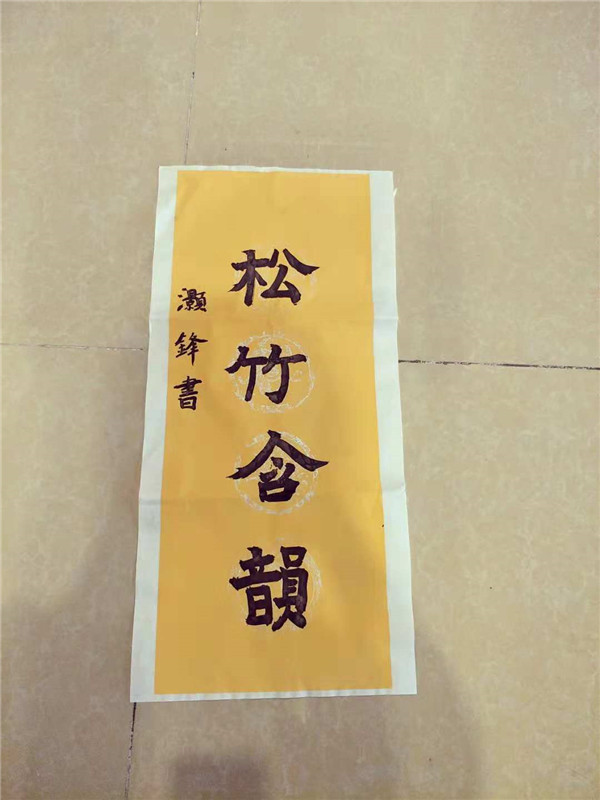 松竹含韻
灝鋒書